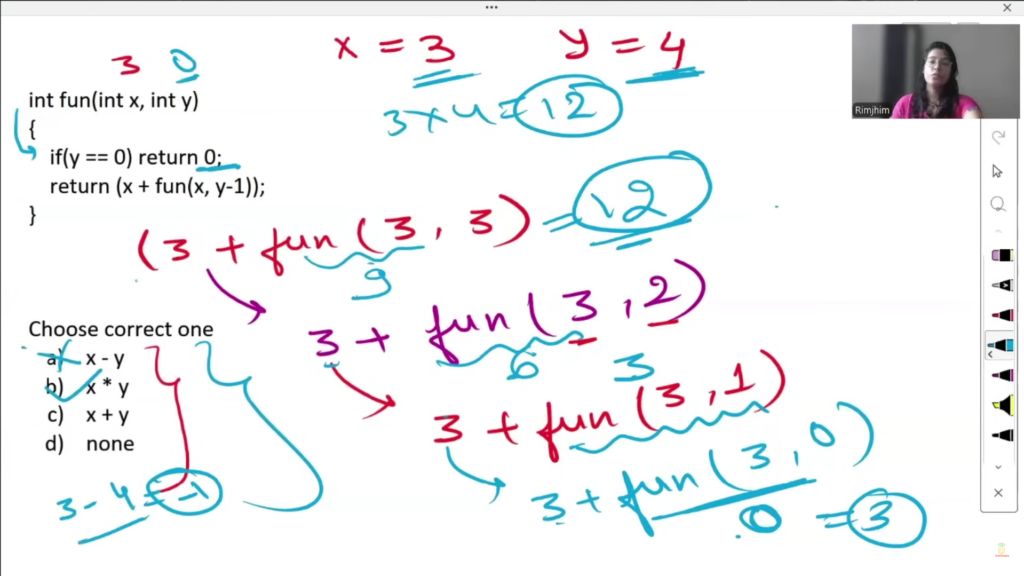 x = 3 y = 4
3 0
3 x 4 = 12
int fun(int x, int y)
{
if(y == 0) return 0;
return (x + fun(x, y-1));
}
Rimjhim
(3 + fun(3, 3) = 12
9
3 + fun(3, 2)
6 3
3 + fun(3, 1)
3 + fun(3, 0)
0 = 3
Choose correct one
a) x - y
b) x * y
c) x + y
d) none
3 - 4 = -1